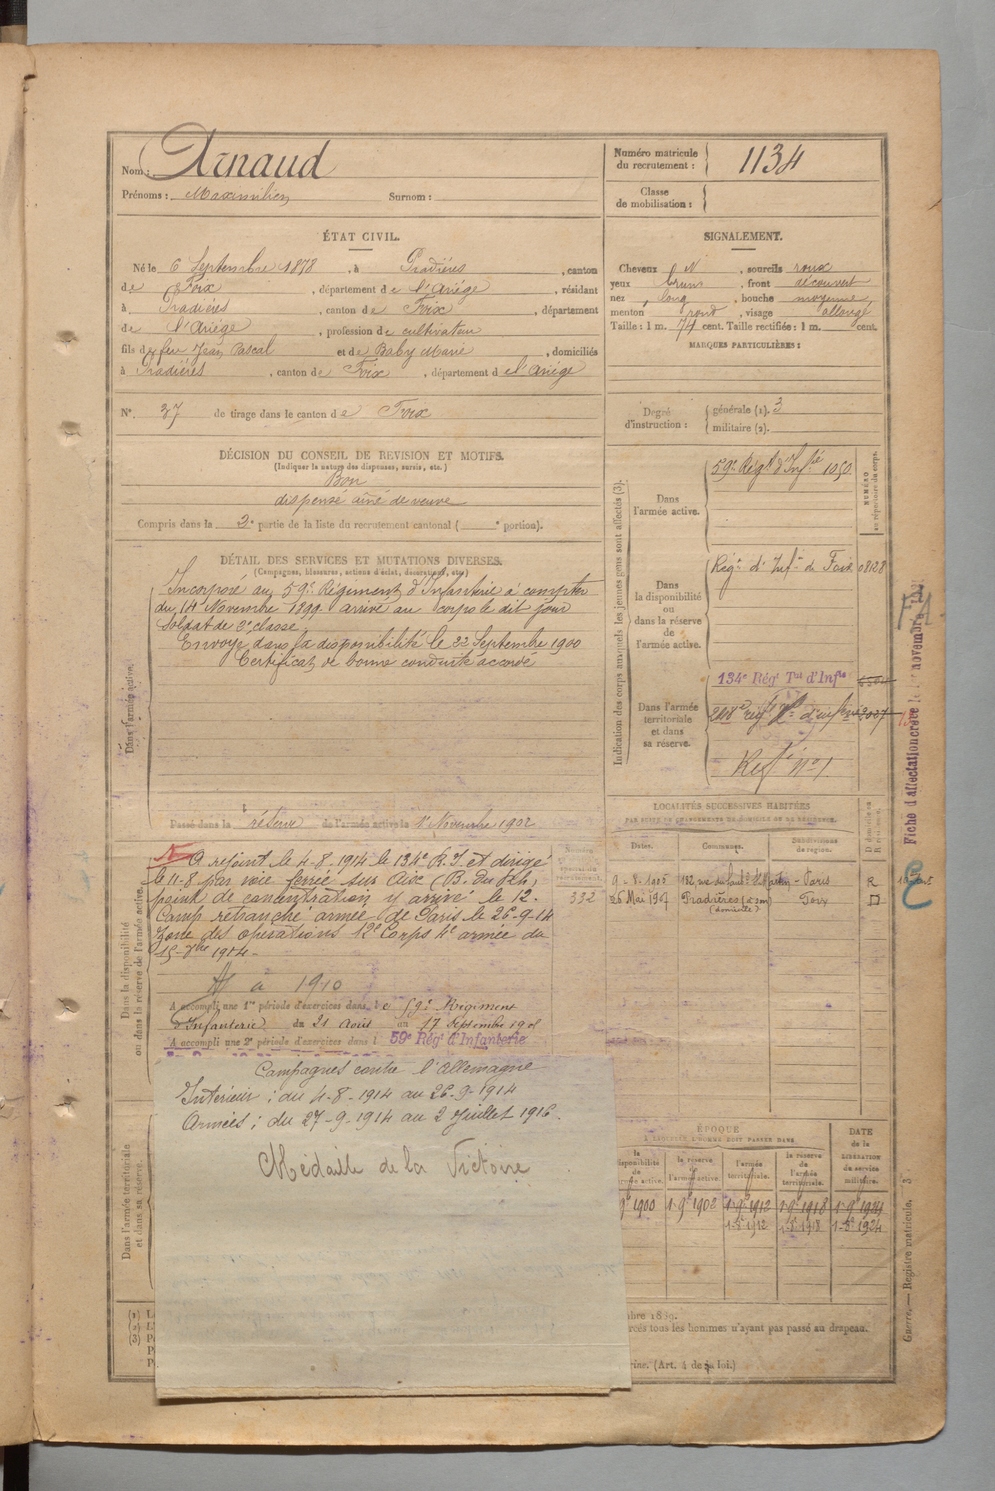 Nom : Arnaud
Prénoms : Maximilien Surnom :
Numéro matricule du recrutement : 1134
Classe de mobilisation :
ÉTAT CIVIL.
Né le 6 Septembre 1878, à Pradières, canton
de Foix, département de l'Ariège, résidant
à Pradières, canton de Foix, département
de l'Ariège, profession de cultivateur
fils de feu Jean Pascal et de Baby Marie, domiciliés
à Pradières, canton de Foix, département de l'Ariège
N° 37 de tirage dans le canton de Foix
SIGNALEMENT.
Cheveux N, sourcils roux
yeux bruns, front découvert
nez long, bouche moyenne
menton rond, visage allongé
Taille : 1 m. 74 cent. Taille rectifiée : 1 m. cent.
MARQUES PARTICULIÈRES :
Degré d'instruction : générale (1). 3
militaire (2).
DÉCISION DU CONSEIL DE REVISION ET MOTIFS.
(Indiquer la nature des dispenses, sursis, etc.)
Bon
dispensé aîné de veuve
Compris dans la 3e partie de la liste du recrutement cantonal ( e portion).
DÉTAIL DES SERVICES ET MUTATIONS DIVERSES.
(Campagnes, blessures, actions d'éclat, décorations, etc.)
Dans l'armée active.
Incorporé au 59e Régiment d'Infanterie à compter
du 14 Novembre 1899 arrivé au corps le dit jour
soldat de 2e classe
Envoyé dans la disponibilité le 22 Septembre 1900
Certificat de bonne conduite accordé
Passé dans la réserve de l'armée active le 1er Novembre 1902
Indication des corps auxquels les jeunes gens sont affectés (3).
NUMÉRO au répertoire du corps.
Dans l'armée active. 59e Régt d'Infie 1050
Dans la disponibilité ou dans la réserve de l'armée active. Régt d'Infie de Foix 08128
Dans l'armée territoriale et dans sa réserve. 134e Régt Tal d'Infie
LOCALITÉS SUCCESSIVES HABITÉES
PAR SUITE DE CHANGEMENTS DE DOMICILE OU DE RÉSIDENCE.
Dates. Communes. Subdivisions de région.
9-8-1905 Paris R
332 26 Mai 1907 Pradières Foix D
(domicile)
Dans la disponibilité ou dans la réserve de l'armée active.
A rejoint le 4-8-1914 le 134e R.I. et dirigé
le 11-8 par voie ferrée sur Aix (B. du Rh.)
point de concentration y arrivé le 12.
Camp retranché armée de Paris le 26-9-14
Zone des opérations 12e Corps 4e armée du
15-
1914-
à 1910
A accompli une 1re période d'exercices dans le 59e Régiment
d'Infanterie du 21 Août au 17 Septembre 1905
A accompli une 2e période d'exercices dans l 59e Régt d'Infanterie
Campagnes contre l'Allemagne
Intérieur : du 4-8-1914 au 26-9-1914
Armées ; du 27-9-1914 au 2 Juillet 1916.
Médaille de la Victoire
Dans l'armée territoriale et dans sa réserve.
ÉPOQUE
À LAQUELLE L'HOMME DOIT PASSER DANS
la disponibilité de l'armée active. la réserve de l'armée active. l'armée territoriale. la réserve de l'armée territoriale.
DATE de la LIBÉRATION du service militaire.
1900 1-9bre 1902 1-9bre 1912 1-9bre 1918 1-9bre 1924
1-8bre 1912 1-8bre 1918 1-8bre 1924
(1)
(2)
(3)
1889.
tous les hommes n'ayant pas passé au drapeau.
(Art. 4 de la loi.)
Guerre. — Registre matricule. 3
Fiche d'affectation créée le 1er novembre